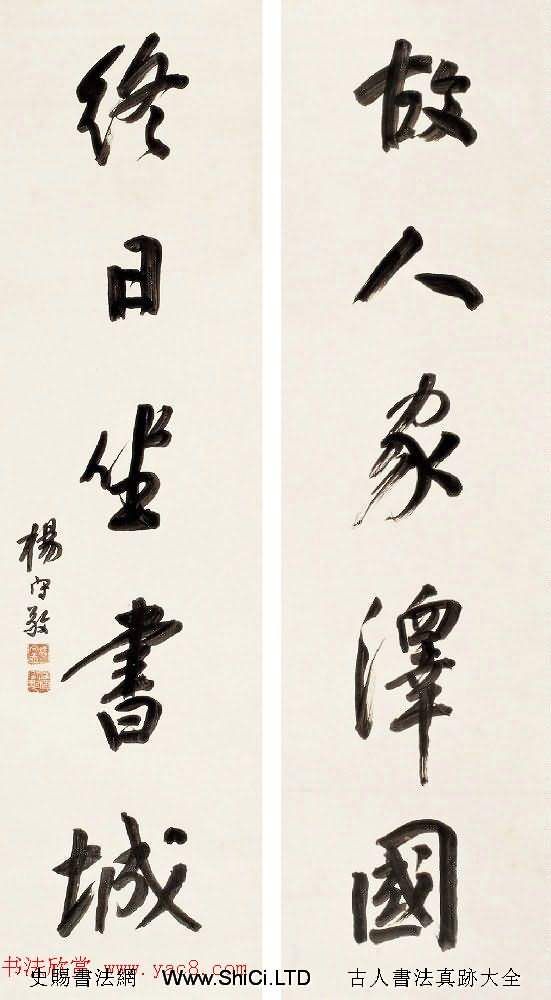 故人家澤國
終日坐書城
楊守敬
书法欣赏 www.yac8.com
史賜書法網 Www.ShiCi.LTD 古人書法真跡大全